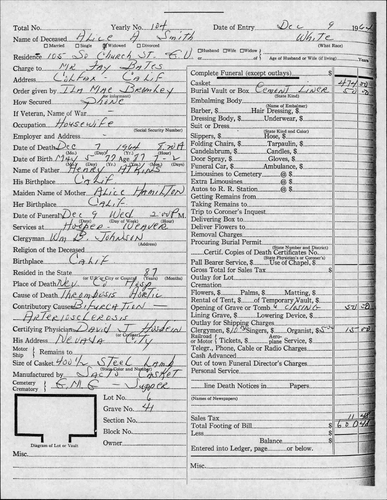 Total No. Yearly No. 124 Date of Entry Dec 9 1964
Name of Deceased Alice A Smith White
Married Single Widowed Divorced Husband Wife Widow (What Race)
Residence 105 So Church St G.V. Age of Husband or Wife (if living)
Charge to Mr Jay Bates
Address Colfax - Calif
Order given by Ila Mae Bromley
How Secured Phone
If Veteran, Name of War
Occupation Housewife
(Social Security Number)
Employer and Address
Date of Death Dec 7 1964
Date of Birth May 5 Age 87 7-2
Name of Father Henry Atkins
His Birthplace Calif
Maiden Name of Mother Alice Hamilton
Her Birthplace Calif
Date of Funeral Dec 9 Wed 2:00 P.M.
Services at Hooper-Weaver
Clergyman Wm B. Johnson
Religion of the Deceased
Birthplace Calif
Resided in the State 87
Place of Death Nev Co Hosp
Cause of Death Thrombosis Aortic
Contributory Causes Bifurcation -
Arteriosclerosis
Certifying Physician David J
His Address Nevada City
Motor Ship Remains to
Size of Casket Steel Lamb
Manufactured by Sac'to Casket
Cemetery Crematory
Lot No. 6
Grave No. 41
Section No.
Block No.
Owner
Diagram of Lot or Vault
Misc.
Complete Funeral (except outlays) $
Casket
Burial Vault or Box Cement Liner
(State Kind)
Embalming Body
(Name of Embalmer)
Barber, $ Hair Dressing, $
Dressing Body, $ Underwear, $
Suit or Dress
(State Kind and Color)
Slippers, $ Hose, $
Folding Chairs, $ Tarpaulin, $
Candelabrum, $ Candles, $
Door Spray, $ Gloves, $
Funeral Car, $ Ambulance, $
Limousines to Cemetery @ $
Extra Limousines @ $
Autos to R. R. Station @ $
Getting Remains from
Taking Remains to
Trip to Coroner's Inquest
Delivering Box to
Deliver Flowers to
Removal Charges
Procuring Burial Permit
(State Number and District)
Certif. Copies of Death Certificates No.
Pall Bearer Service, $ Use of Chapel, $
Gross Total for Sales Tax $
Outlay for Lot
Cremation
Flowers, $ Palms, $ Matting, $
Rental of Tent, $ of Temporary Vault, $
Opening of Grave or Tomb & Closing
Lining Grave, $ Lowering Device, $
Outlay for Shipping Charges
Clergymen, $10 Singers, $ Organist, $5 15 00
Railroad Motor Tickets, $ Aeroplane Service, $
Telegr., Phone, Cable or Radio Charges
Cash Advanced
Out of town Funeral Director's Charges
Personal Service
line Death Notices in Papers
(Names of Newspapers)
Sales Tax
Total Footing of Bill $
Less
Balance $
Entered into Ledger, page or below.
Misc.